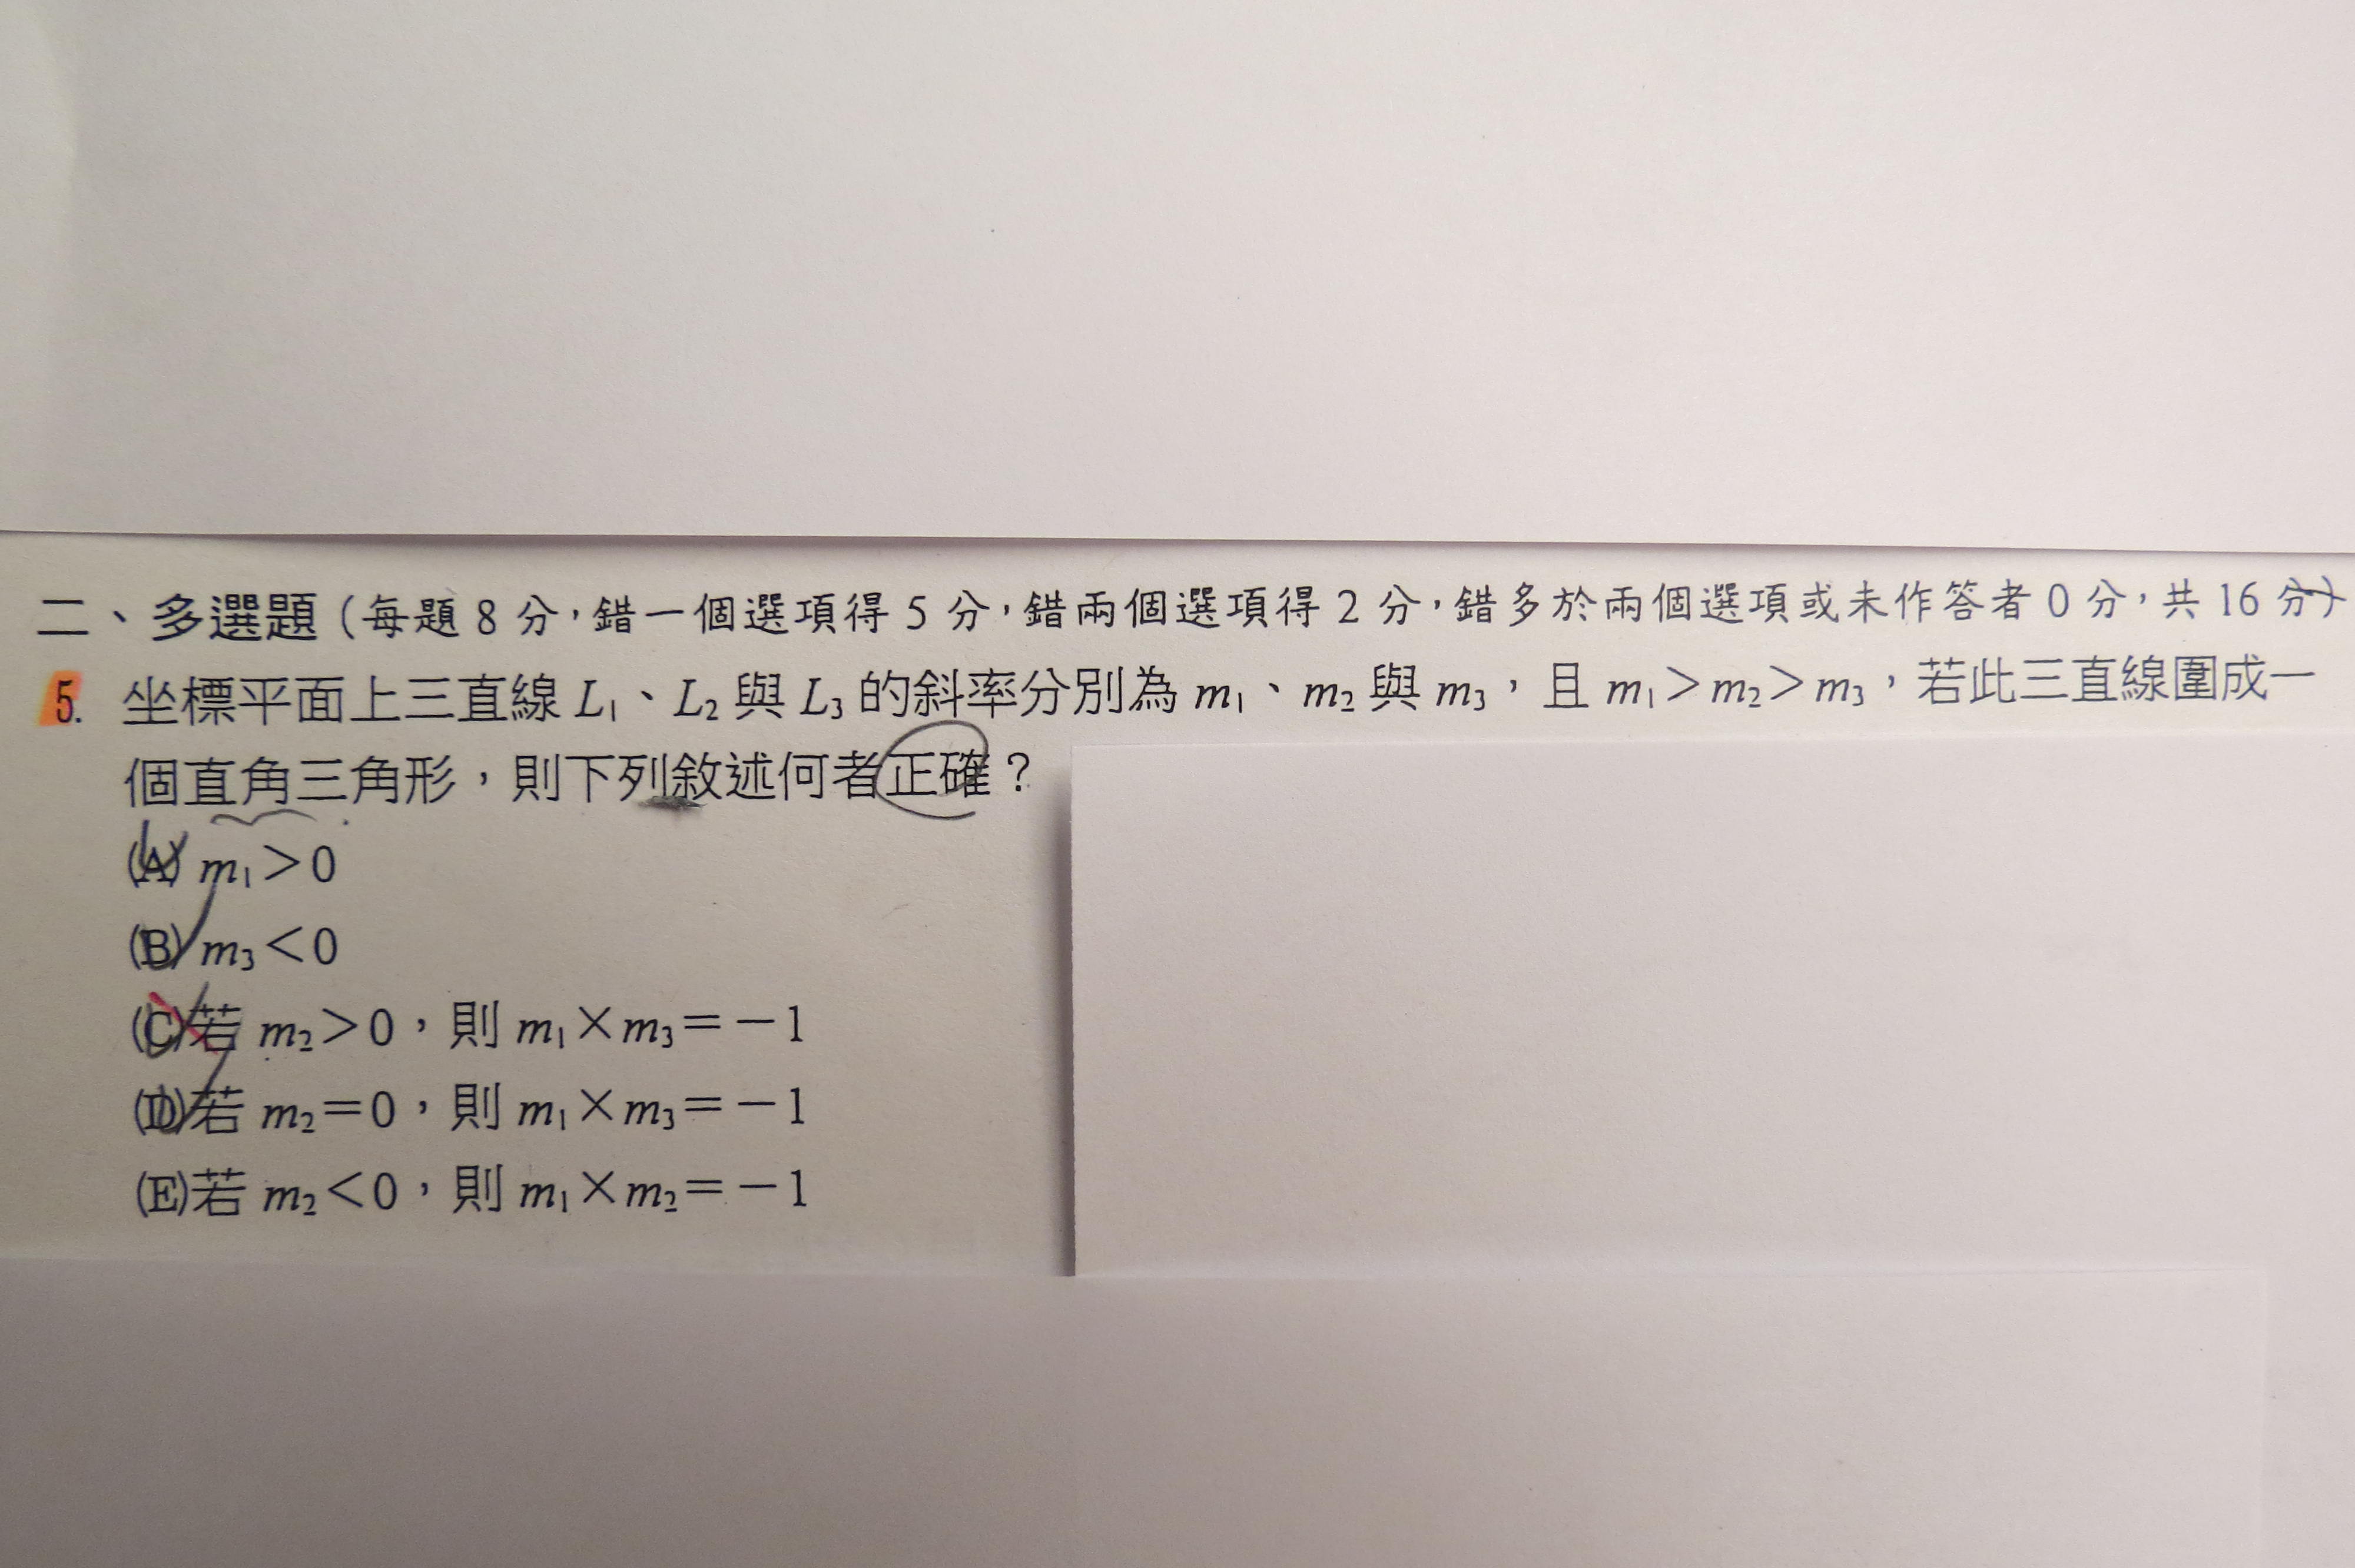 二、多選題(每題8分,錯一個選項得5分,錯兩個選項得2分,錯多於兩個選項或未作答者0分,共16分)
5. 坐標平面上三直線 L₁、L₂ 與 L₃ 的斜率分別為 m₁、m₂ 與 m₃,且 m₁>m₂>m₃,若此三直線圍成一
個直角三角形,則下列敘述何者正確?
(A) m₁>0
(B) m₃<0
(C)若 m₂>0,則 m₁×m₃=-1
(D)若 m₂=0,則 m₁×m₃=-1
(E)若 m₂<0,則 m₁×m₂=-1